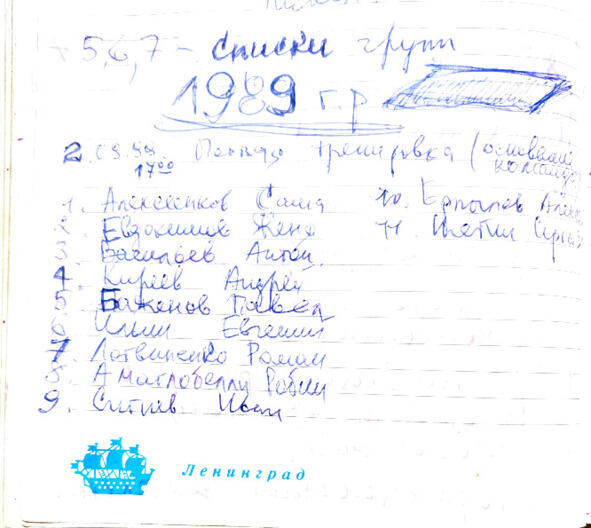 5,6,7 - списки групп
1989 г.р
2.09.98. Первая тренировка (основная
17 00 команда
1. Алексеенков Саша
10. Ермолаев
2. Евдокимов Женя
11. Никтин Сергей
3. Васильев Антон
4. Киреев Андрей
5 Баженов Павел
6. Ильин Евгений
7. Логвиненко Роман
8. Роман
9. Ситнов Иван
Ленинград